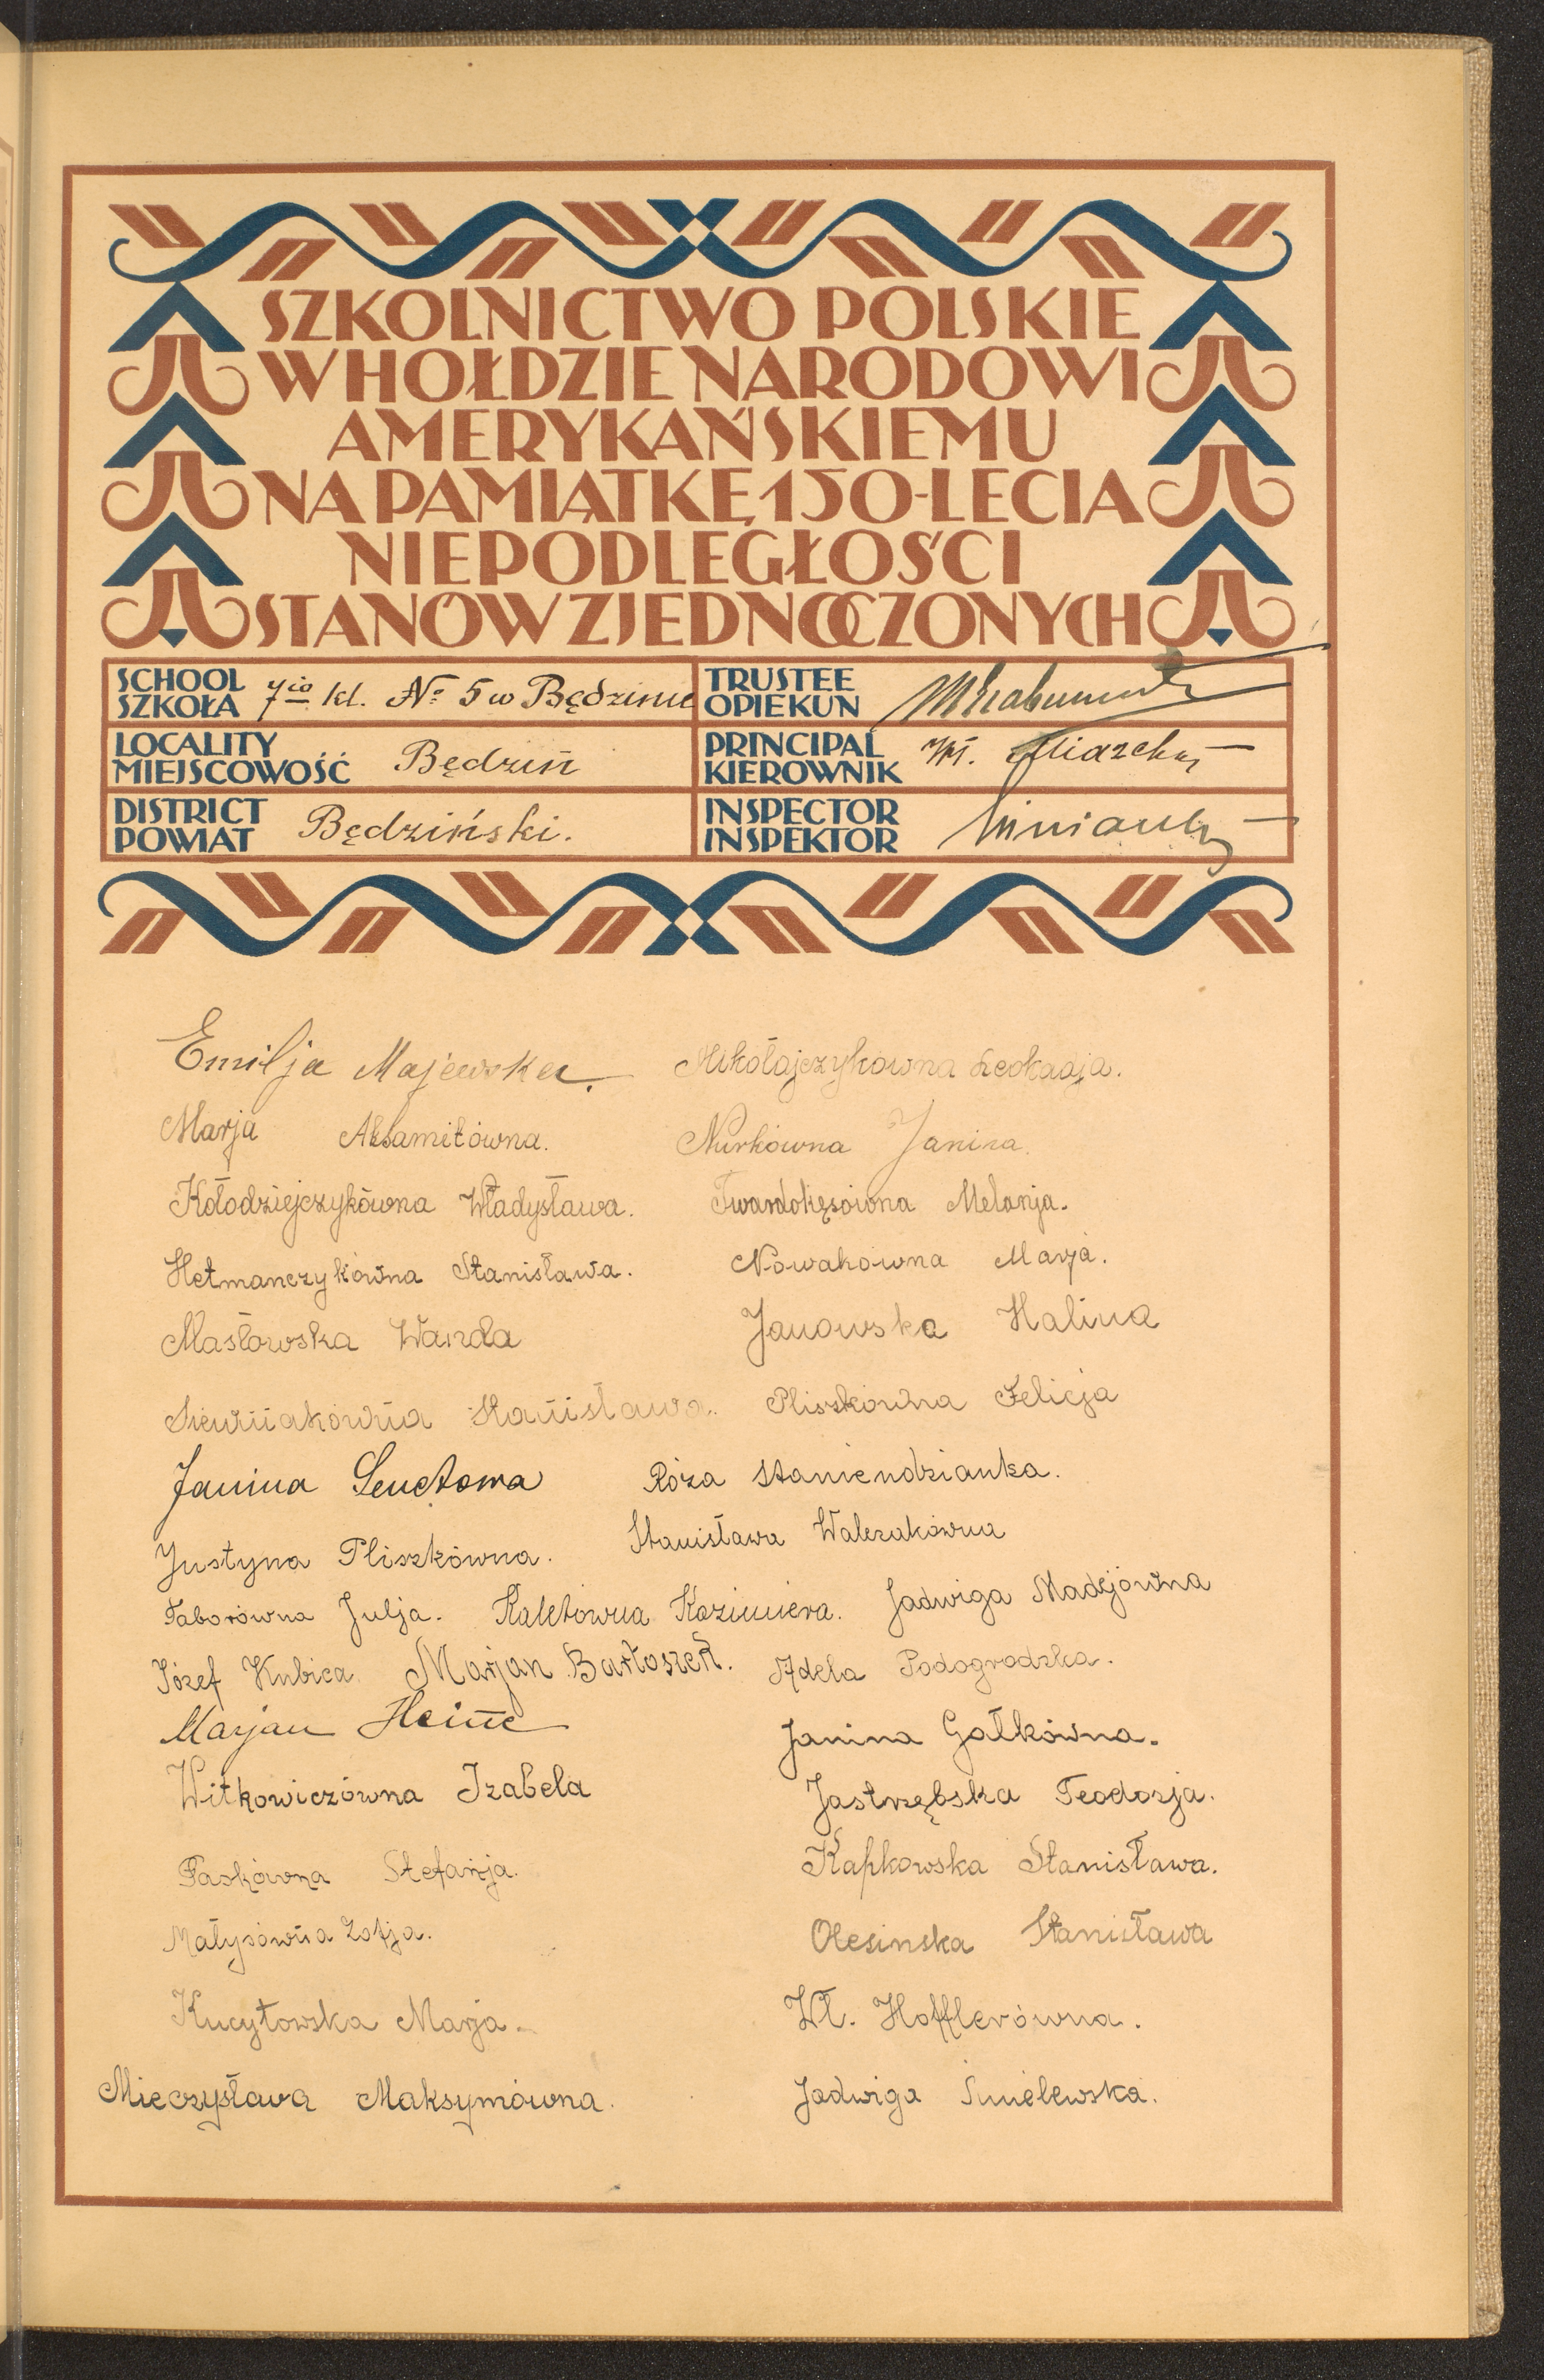 SZKOLNICTWO POLSKIE
W HOŁDZIE NARODOWI
AMERYKAŃSKIEMU
NA PAMIĄTKĘ 150-LECIA
NIEPODLEGŁOŚCI
STANÓW ZJEDNOCZONYCH
SCHOOL
SZKOŁA
7io kl. No 5 w Będzinie
TRUSTEE
OPIEKUN
LOCALITY
MIEJSCOWOŚĆ
Będzin
PRINCIPAL
KIEROWNIK
DISTRICT
POWIAT
Będziński.
INSPECTOR
INSPEKTOR
Emilja Majewska. Mikołajczykówna Leokadja.
Marja Aksamitówna. Nurkówna Janina.
Kołodziejczykówna Władysława. Twardokęsówna Melanja.
Hetmanczykówna Stanisława. Nowakówna Marja.
Masłowska Wanda Janowska Halina
Siewniakówna Stanisława. Pliszkówna Felicja
Janina Róza Staniendzianka.
Justyna Pliszkówna. Stanisława Walczakówna
Taborówna Julja. Kaletówna Kazimiera. Jadwiga Madejówna
Józef Kubica. Marjan Bartoszek. Adela Podogrodzka.
Marjan Heine Janina Gałkówna.
Witkowiczówna Izabela Jastrzębska Teodozja.
Paskówna Stefanja. Kapkowska Stanisława.
Małysówna Zofja. Olesinska Stanisława
Kucytowska Marja. Wł. Hofflerówna.
Mieczysława Maksymówna. Jadwiga Smielewska.